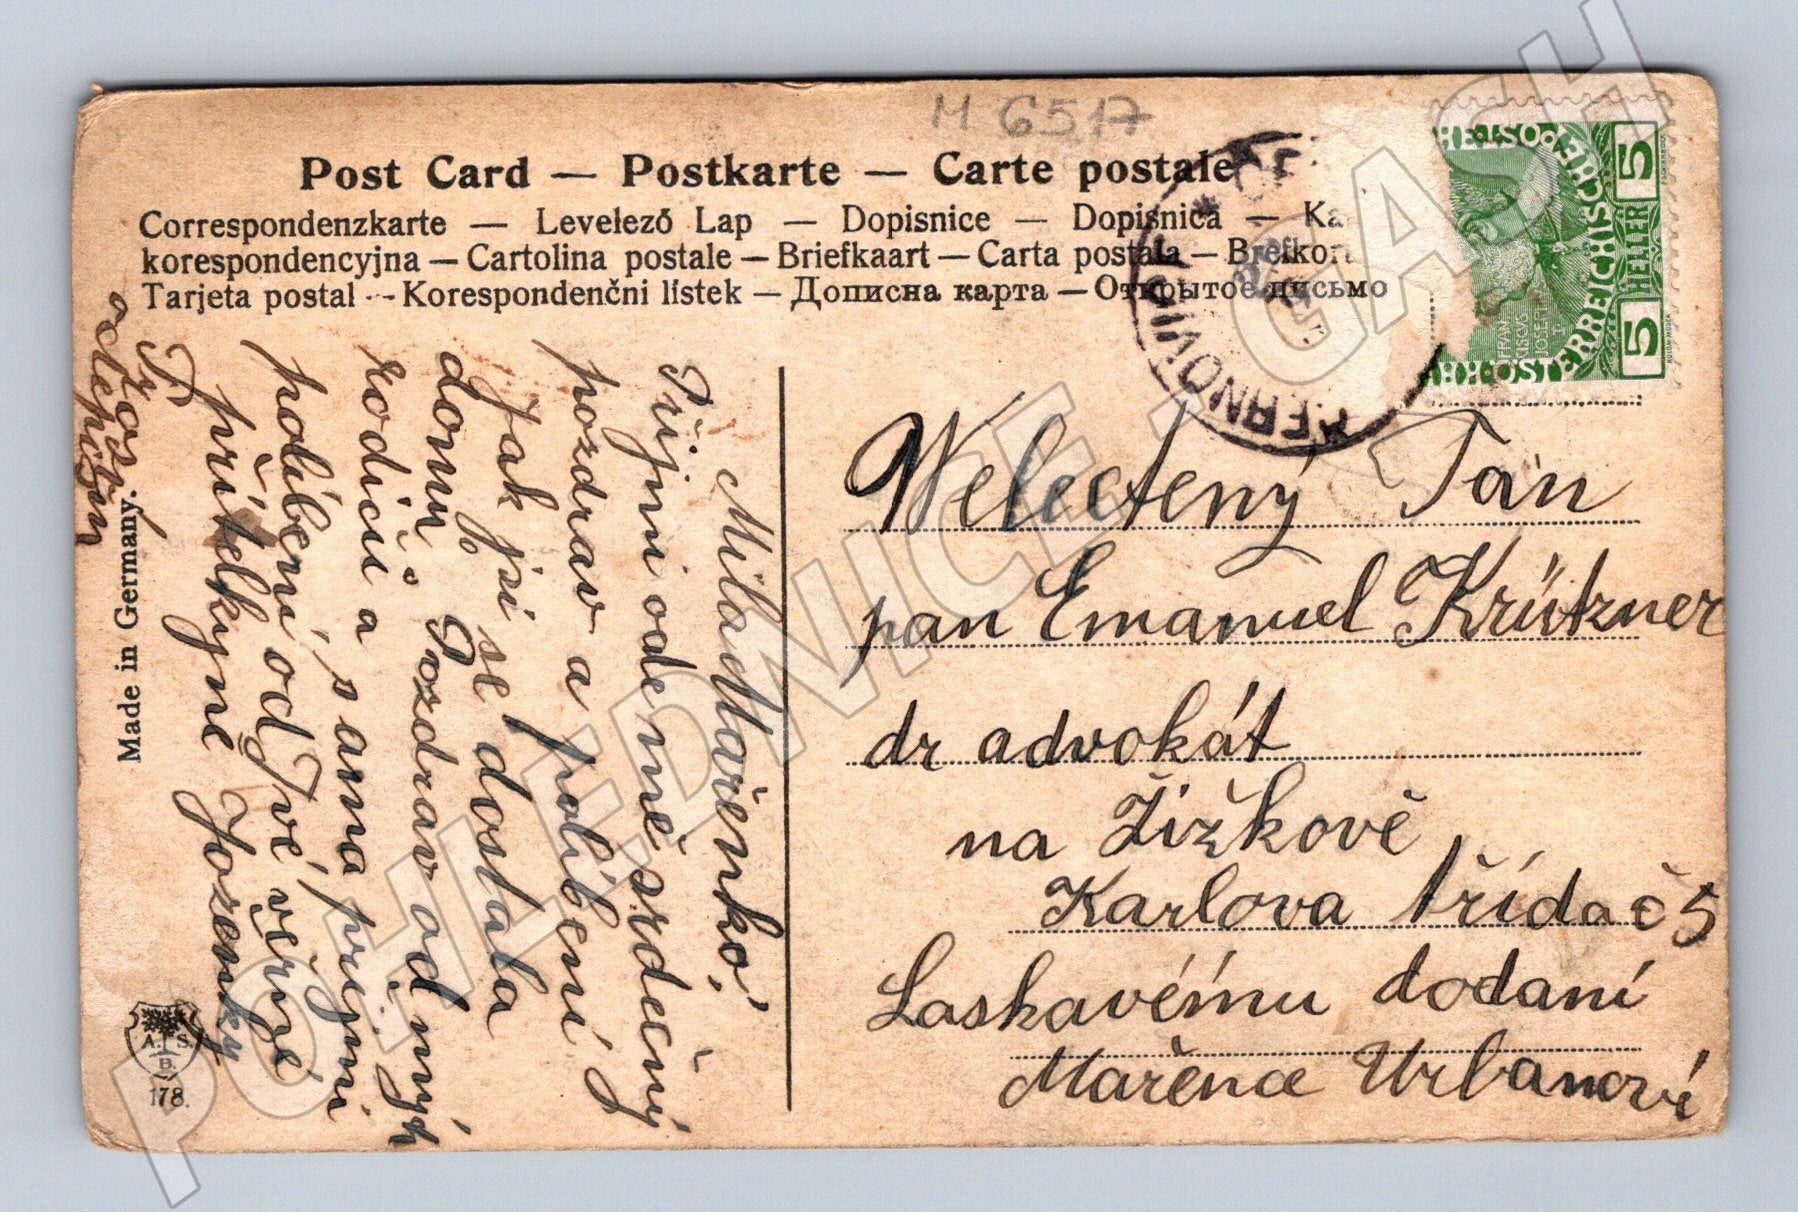 M 6517
Post Card — Postkarte — Carte postale
Correspondenzkarte — Levelező Lap — Dopisnice — Dopisnica — Ka
korespondencyjna — Cartolina postale — Briefkaart — Carta postala — Brefkort
Tarjeta postal — Korespondenčni lístek — Дописна карта — Открытое письмо
ÖSTERREICHISCHE POST
5 HELLER 5
FRAN
CISCVS
JOSEPH
I
ČERNOVICE
Milá Mařenko,
Přijmi ode mě srdečný
pozdrav a políbení
Jak jsi se dostala
domu. Pozdrav od mých
rodičů a sama přijmi
políbení od Tvé věrné
přítelkyně Joženky
Made in Germany.
A. S.
B
178.
Velectený Pan
pan Emanuel Krützner
dr advokát
na Žižkově
Karlova třída č 5
Laskavému dodaní
Mařence Urbanové
POHLEDNICE - GASH